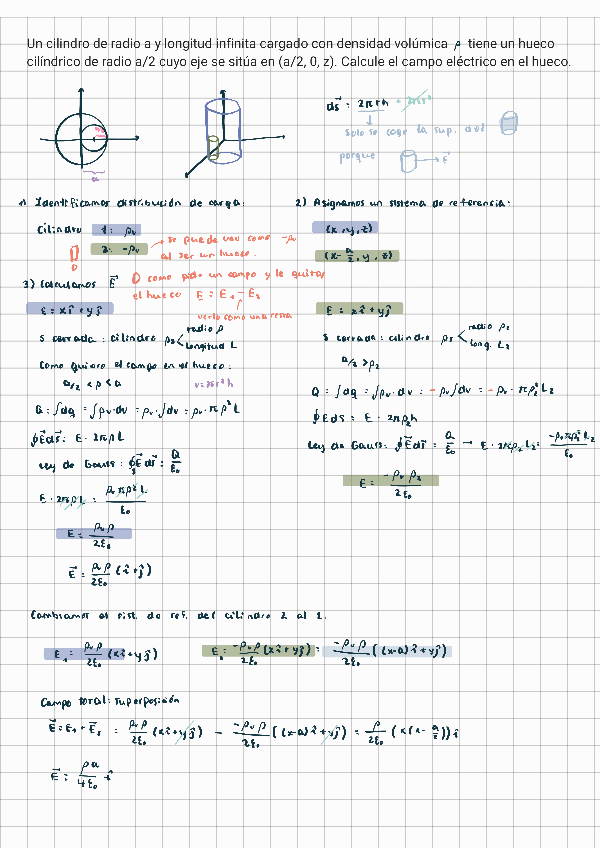 Un cilindro de radio a y longitud infinita cargado con densidad volúmica ρ tiene un hueco
cilíndrico de radio a/2 cuyo eje se sitúa en (a/2, 0, z). Calcule el campo eléctrico en el hueco.
ds⃗ : 2πrh + 2πr²
solo se coge la sup. del
porque
E⃗
a
1) Identificamos distribución de carga:
Cilindro 1: ρv
2: -ρv → se puede ver como -ρv
al ser un hueco.
2) Asignamos un sistema de referencia:
(x, y, z)
(x - a/2, y, z)
3) Calculamos E⃗
como pido un campo y le quitas
el hueco E = E₁ - E₂
verlo como una resta
E = xî + yĵ
S cerrada: cilindro ρs < radio ρ
longitud L
Como quiero el campo en el hueco:
a/2 < ρ < a
v = πr²h
Q = ∫dq = ∫ρv·dv = ρv·∫dv = ρv·πρ²L
∮E⃗ds⃗ = E·2πρL
Ley de Gauss: ∮E⃗ds⃗ = Q/ε₀
E·2πρL = ρv πρ²L/ε₀
E = ρv ρ/2ε₀
E⃗ = ρv ρ/2ε₀ (î + ĵ)
E = xî + yĵ
S cerrada: cilindro ρs < radio ρ₂
long. L₂
a/2 > ρ₂
Q = ∫dq = ∫ρv·dv = -ρv∫dv = -ρv·πρ₂²L₂
∮Eds = E·2πρ₂h
Ley de Gauss: ∮E⃗ds⃗ = Q/ε₀ → E·2πρ₂L₂ = -ρvπρ₂²L₂/ε₀
E = -ρv ρ₂/2ε₀
Cambiamos el sist. de ref. del cilindro 2 al 1.
E₁ = ρv ρ/2ε₀ (xî + yĵ)
E₂ = -ρv ρ/2ε₀ (xî + yĵ) = -ρv ρ/2ε₀ ((x-a)î + yĵ)
Campo total: superposición
E⃗ = E₁ + E⃗₂ = ρv ρ/2ε₀ (xî + yĵ) - -ρv ρ/2ε₀ ((x-a)î + yĵ) = ρ/2ε₀ (x(x - a/2))î
E⃗ = ρa/4ε₀ î